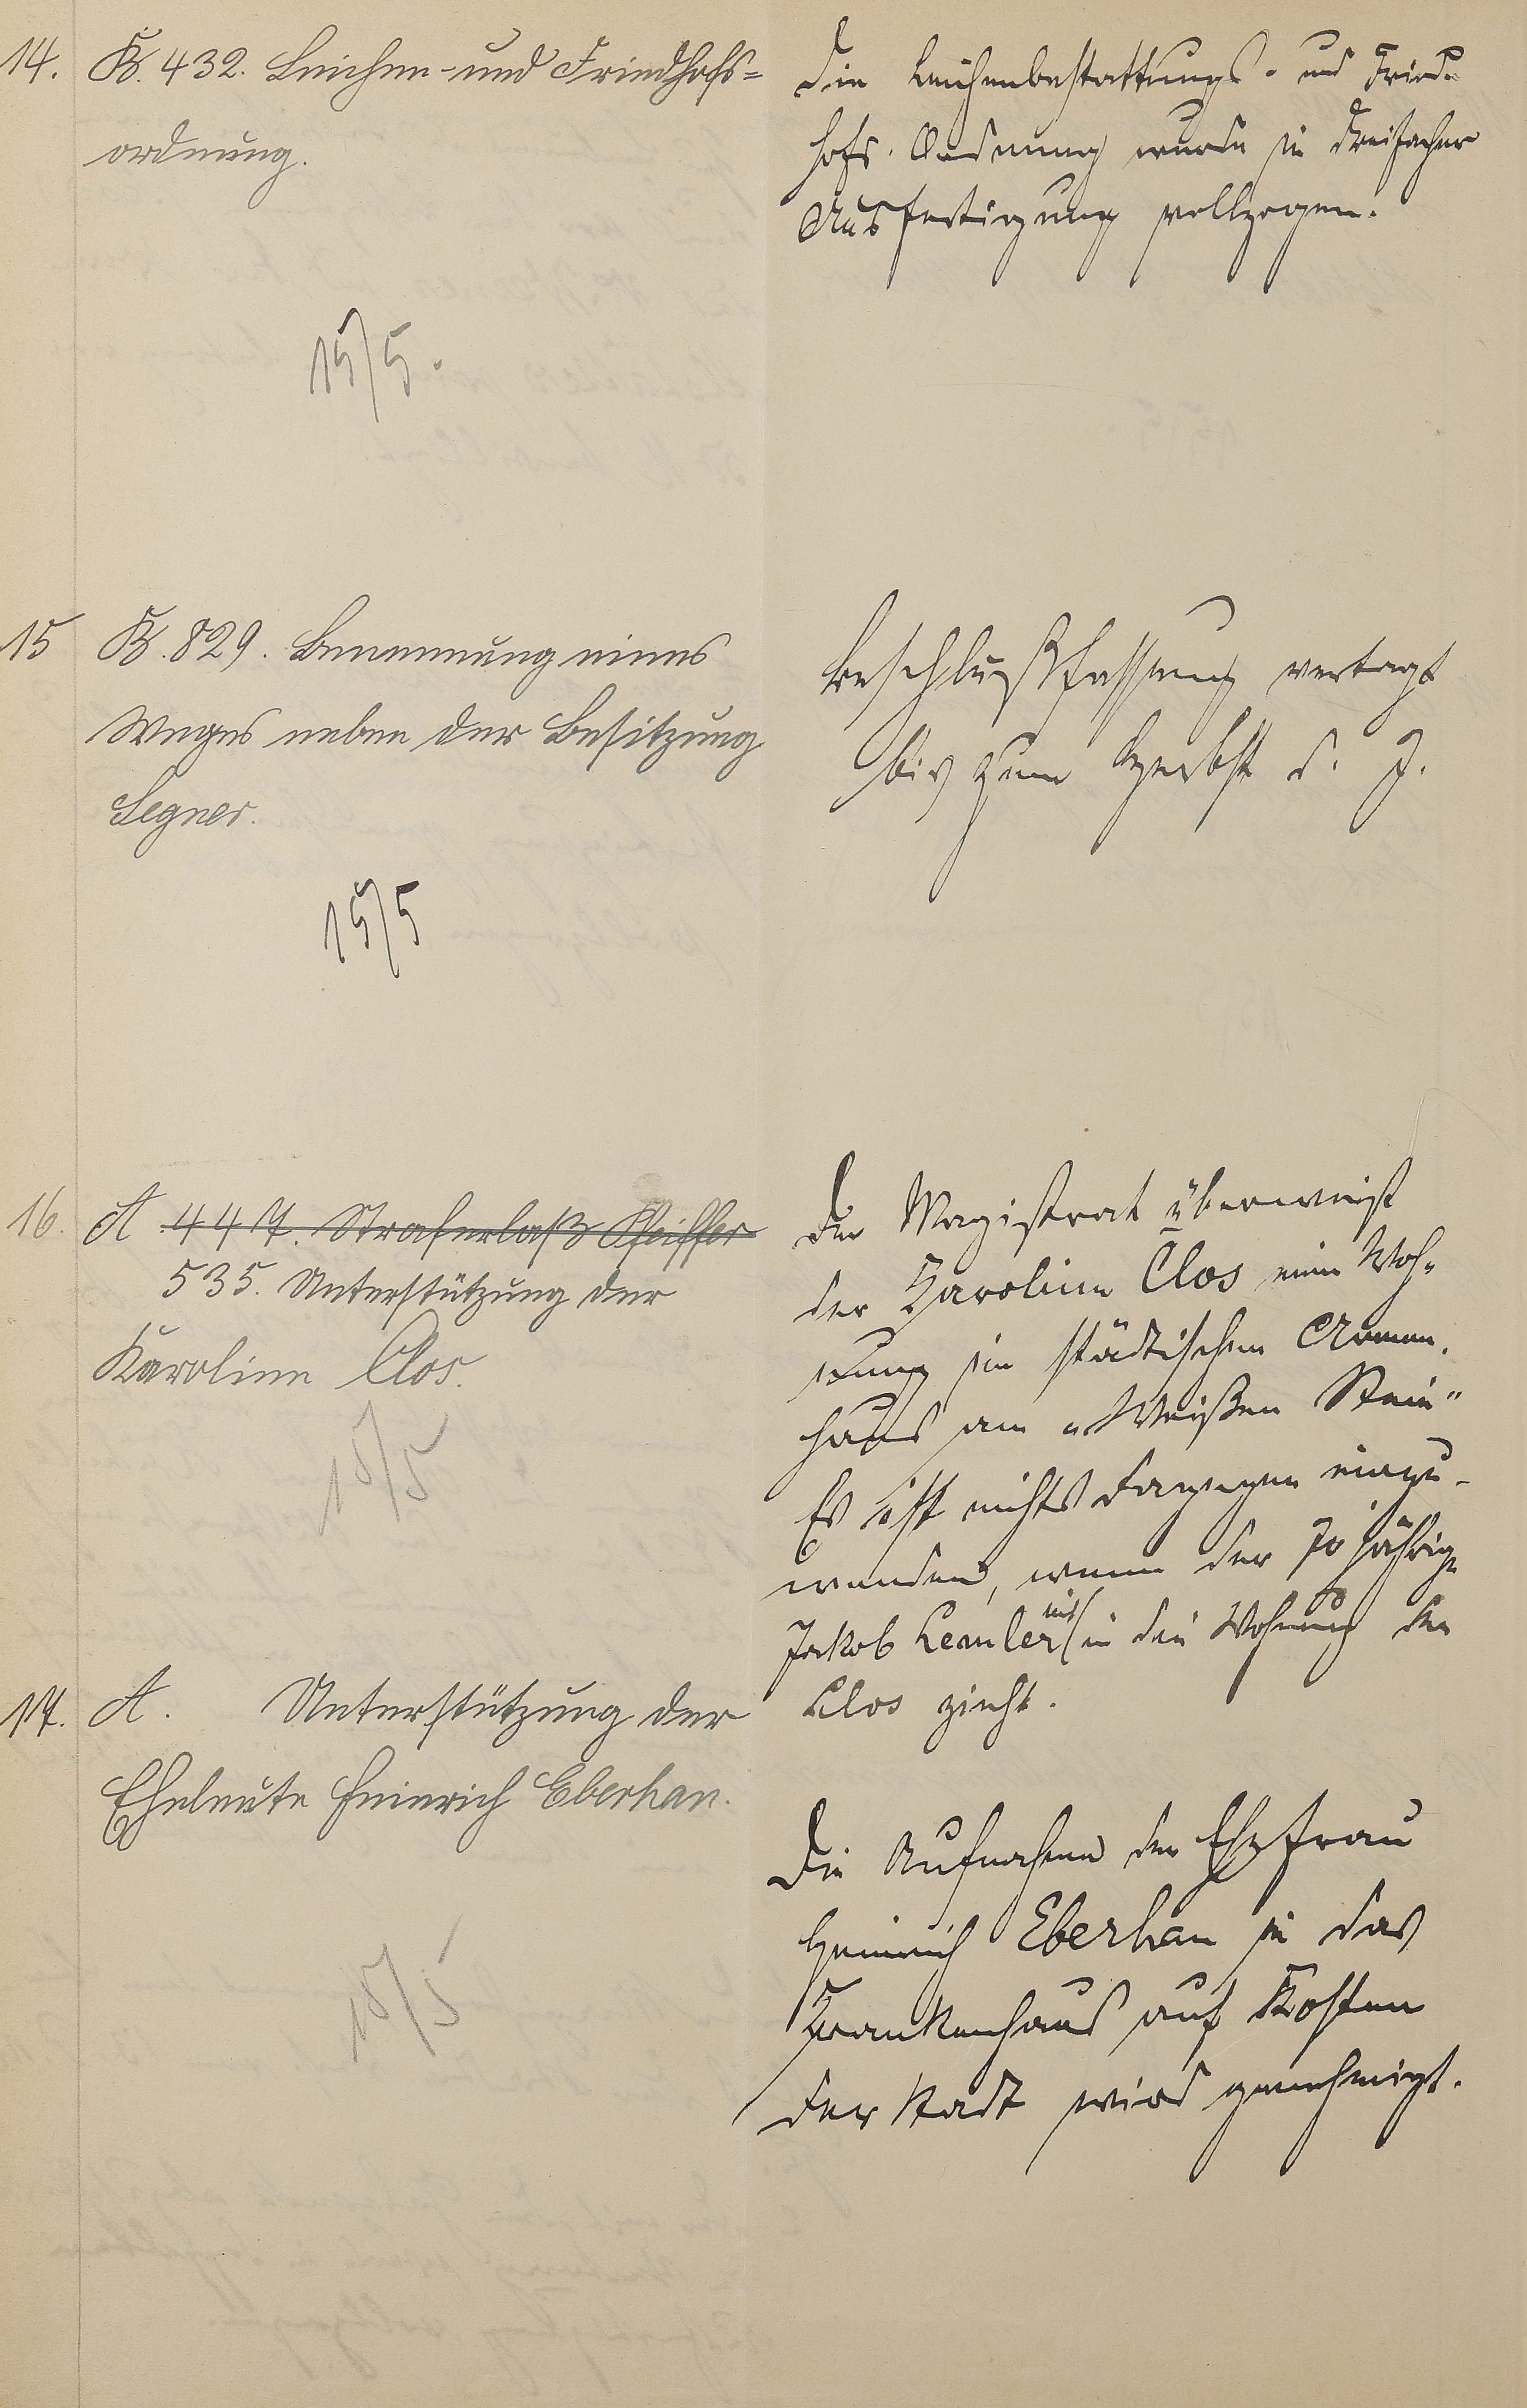 14. B. 432. Leichen- und Friedhofs=
ordnung.
15/5.
Die Leichenbestattungs- und Fried-
hofs-Ordnung wurde in dreifacher
Ausfertigung vollzogen.
15 B. 829. Benennung eines
Weges neben der Besitzung
Legner.
15/5
Beschlußfassung vertagt
bis zum Herbst d. J.
16. A 447. Straferlaß Pfeiffer
535. Unterstützung der
Karoline Clos.
15/5
Der Magistrat überweist
der Karoline Clos eine Woh-
nung im städtischen Armen-
haus am „Weißen Stein“
Es ist nichts dagegen einzu-
wenden, wenn der 70 jährige
Jakob Lemler mit in die Wohnung der
Clos zieht.
17. A. Unterstützung der
Eheleute Heinrich Eberhan.
15/5
Die Aufnahme der Ehefrau
Heinrich Eberhan in das
Krankenhaus auf Kosten
der Stadt wird genehmigt.